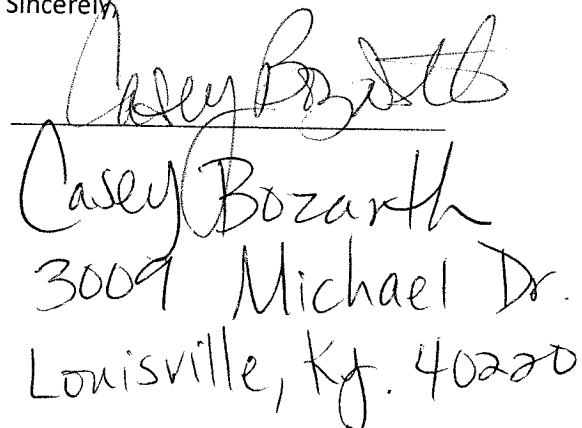 Sincerely,
Casey Bozarth
Casey Bozarth
3009 Michael Dr.
Louisville, Ky. 40220